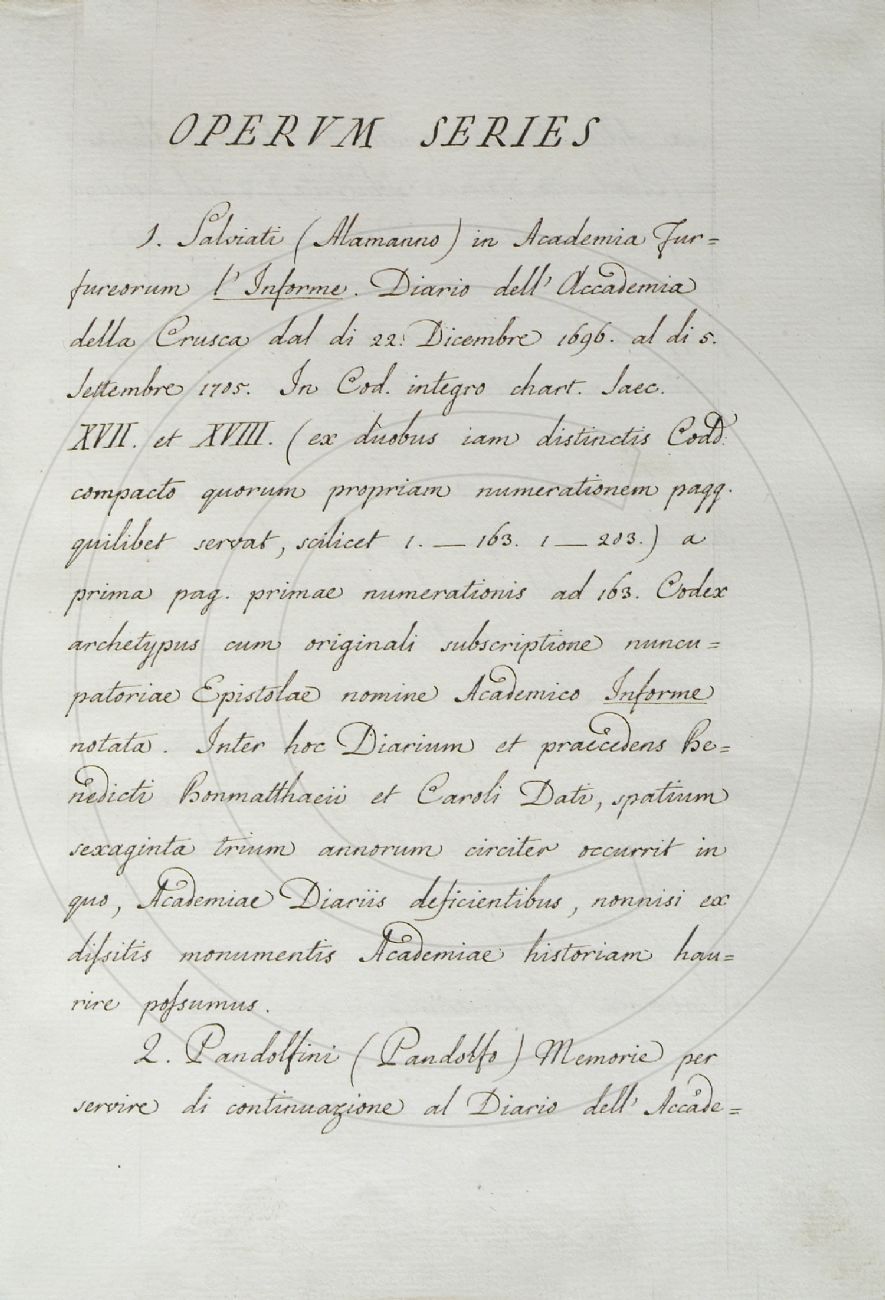 OPERVM SERIES
1. Salviati (Alamanno) in Academia Fur=
fureorum l' Informe. Diario dell' Accademia
della Crusca dal di 22. Dicembre 1696. al di 5.
Settembre 1705. In Cod. integro chart. Saec.
XVII. et XVIII. (ex duobus iam distinctis Codd.
compacto quorum propriam numerationem pagg.
quilibet servat, scilicet 1. — 163. 1 — 203.) a
prima pag. primae numerationis ad 163. Codex
archetypus cum originali subscriptione nuncu=
patoriae Epistolae nomine Academico Informe
notata. Inter hoc Diarium et praecedens Be=
nedicti Bonmatthaeii et Caroli Dati, spatium
sexaginta trium annorum circiter occurrit in
quo, Academiae Diariis deficientibus, nonnisi ex
dissitis monumentis Academiae historiam hau=
rire possumus.
2. Pandolfini (Pandolfo) Memorie per
servire di continuazione al Diario dell' Accade=